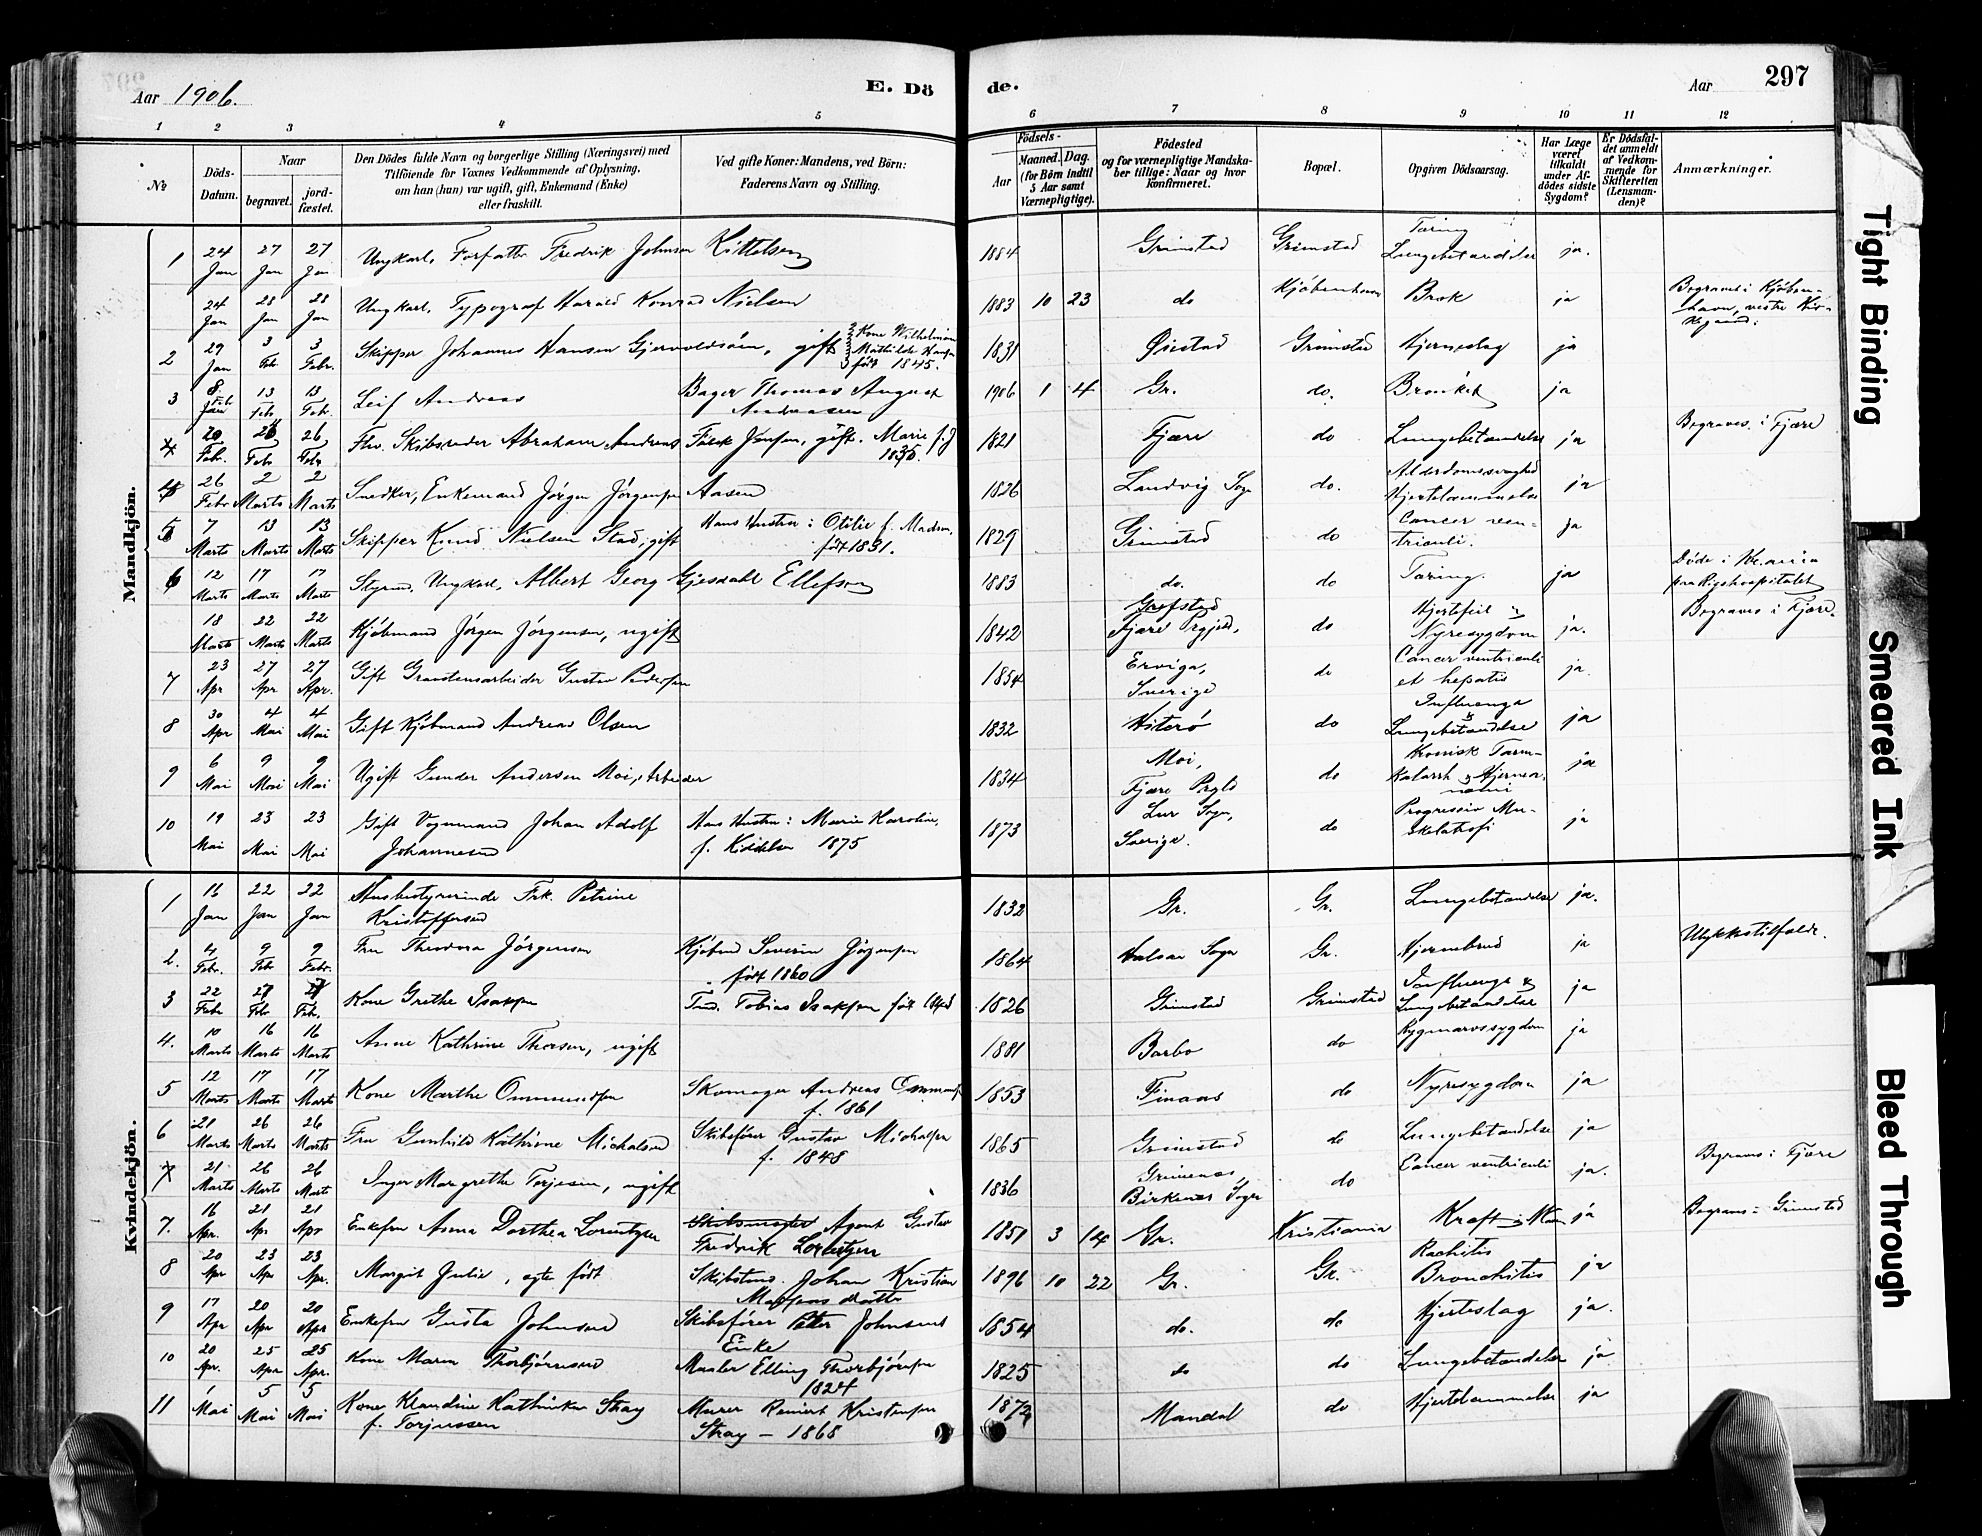 Aar 1906.
E. Dö
de.
Aar
297
1 2 3 4 5 6 7 8 9 10 11 12
No
Döds-Datum.
Naar
begravet.
jord-fæstet.
Den Dödes fulde Navn og borgerlige Stilling (Næringsvei) med
Tilföiende for Voxnes Vedkommende af Oplysning,
om han (hun) var ugift, gift, Enkemand (Enke)
eller fraskilt.
Ved gifte Koner: Mandens, ved Börn:
Faderens Navn og Stilling.
Födsels-
Aar
Maaned. Dag.
(for Börn indtil
5 Aar samt
Værnepligtige).
Födested
og for værnepligtige Mandska-
ber tillige: Naar og hvor
konfirmeret.
Bopæl.
Opgiven Dödsaarsag.
Har Læge
været
tilkaldt
under Af-
dödes sidste
Sygdom?
Er Dödsfal-
det anmeldt
af Vedkom-
mende for
Skifteretten
(Lensman-
den)?
Anmærkninger.
Mandkjön.
1 24 Jan 27 Jan 27 Jan Ungkarl, Forfatter Fredrik Johnsen Kittelsen 1884 Grimstad Grimstad Tæring Lungebetændelse ja.
24 Jan 28 Jan 28 Jan Ungkarl, Typograf Harald Konrad Nielsen 1883 10 23 do Kjöbenhavn Brok ja Begravet i Kjöben-havn, vestre Kir-kegaard.
2 29 Jan 3 Febr. 3 Febr. Skipper Johannes Hansen, gift Kone Wilhelmine Mathilde Hansen född 1845. 1831 Öiestad Grimstad Hjerneslag ja
3 8 Feb 13 Feb 13 Febr. Leif Andreas Bager Thomas August Andreassen 1906 1 4 Gr. do. Bronkit ja
20 Febr. 26 Febr 26 Febr Fhv. Skibsreder Abraham Andreas Falck Jensen, gift. Marie f. J 1835. 1821 Fjære do Lungebetændelse ja Begraves i Fjære
4 26 Febr 2 Marts 2 Marts Snedker, Enkemand Jörgen Jörgensen Aasen 1826 Landvig Sogn do. Alderdomssvaghed Hjertelammelse ja
5 7 Marts 13 Marts 13 Marts Skipper Knud Nielsen Stad, gift Hans Hustru: Otilie f. Madsen, født 1831. 1829 Grimstad do Cancer ven-triculi. ja
6 12 Marts 17 Marts 17 Marts Styrm. Ungkarl, Albert Georg Gjesdahl Ellefsen 1883 do. do Tæring. ja Döde i Kr.ania paa Rigshospitalet
18 Marts 22 Marts 22 Marts Kjöbmand Jörgen Jörgensen, ugift 1842 Grefstad Fjære Prgjeld, do Hjertefeil & Nyresygdom ja. Begraves i Fjære.
7 23 Apr 27 Apr 27 Apr. Gift Granstensarbeider Gustav Pedersen 1854 Sverige do Cancer ventriculi et hepatis ja.
8 30 Apr 4 Mai 4 Mai Gift Kjöbmand Andreas Olsen 1832 Hiterö do Influenza & Lungebetændelse ja
9 6 Mai 9 Mai 9 Mai Ugift Gunder Andersen Moi, Arbeider 1834 Moi, Fjære Prgld do Kronisk Tarm-Katarrh & Hjernea-næmi ja
10 19 Mai 23 Mai 23 Mai Gift Vognmand Johan Adolf Johannesen Hans Hustru: Marie Karoline, f. Kiddelsen 1875 1873 Lur Sogn, Sverige. do Progressiv Mu-skelatrofi ja
Kvindekjön.
1 16 Jan 22 Jan 22 Jan Husbestyrerinde Frk. Petrine Kristoffersen 1832 Gr. Gr. Lungebetændelse ja.
2. 4 Febr. 9 Febr 9 Febr. Fru Theodora Jörgensen Kjöbmd Severin Jörgensen född 1860 1864 Halsaa Sogn Gr. Hjernebrud ja Ulykkestilfælde.
3 22 Febr 27 Febr 27 Febr. Kone Grethe Isaksen Tobias Isaksen 1826 Grimstad Grimstad Influenza & Lungebetændelse ja
4. 10 Marts 16 Marts 16 Marts Anne Kathrine Thorsen, ugift 1881 Barbo do Rygmarvssygdom ja
5 12 Marts 17 Marts 17 Marts Kone Marthe Ommundsen Skomager Andreas Ommundsen f. 1861 1853 Finaas do Nyresygdom ja
6 21 Marts 26 Marts 26 Marts Fru Gunhild Kathrine Michalsen Skibsförer Gustav Michalsen f. 1848 1865 Grimstad do Lungebetændelse ja
21 Marts 26 Marts 26 Marts Inger Margrethe Terjesen, ugift 1836 Grimenæs Birkenæs Sogn do Cancer ventriculi ja. Begraves i Fjære
7. 16 Apr. 21 Apr 21 Apr Enkefru Anna Dorthea Lorentzen Skibsmægler Agent Gustav Fredrik Lorentzen 1851 3 14 Gr. Kristiania Kræft i Maven ja Begraves i Grimstad
8 20 Apr 23 Apr 23 Apr. Margit Julie, egte født Johan Kristian datter 1896 10 22 Gr. Gr. Rachitis Bronchitis ja
9 17 Apr 20 Apr 20 Apr Enkefru Gusta Johnsen Skibsförer Peter Johnsens Enke 1854 do. do Hjerteslag ja.
10 20 Apr. 25 Apr 25 Apr. Kone Maren Thorbjörnsen Maaler Elling Thorbjörnsen 1824 1825 do do Lungebetændelse ja
11 1 Mai 5 Mai 5 Mai Kone Klandine Kathinka Stray f. Torjussen Murer Reinert Kristensen Stray - 1868 1872 Mandal do Hjertelammelse ja
Tight Binding
Smeared Ink
Bleed Through